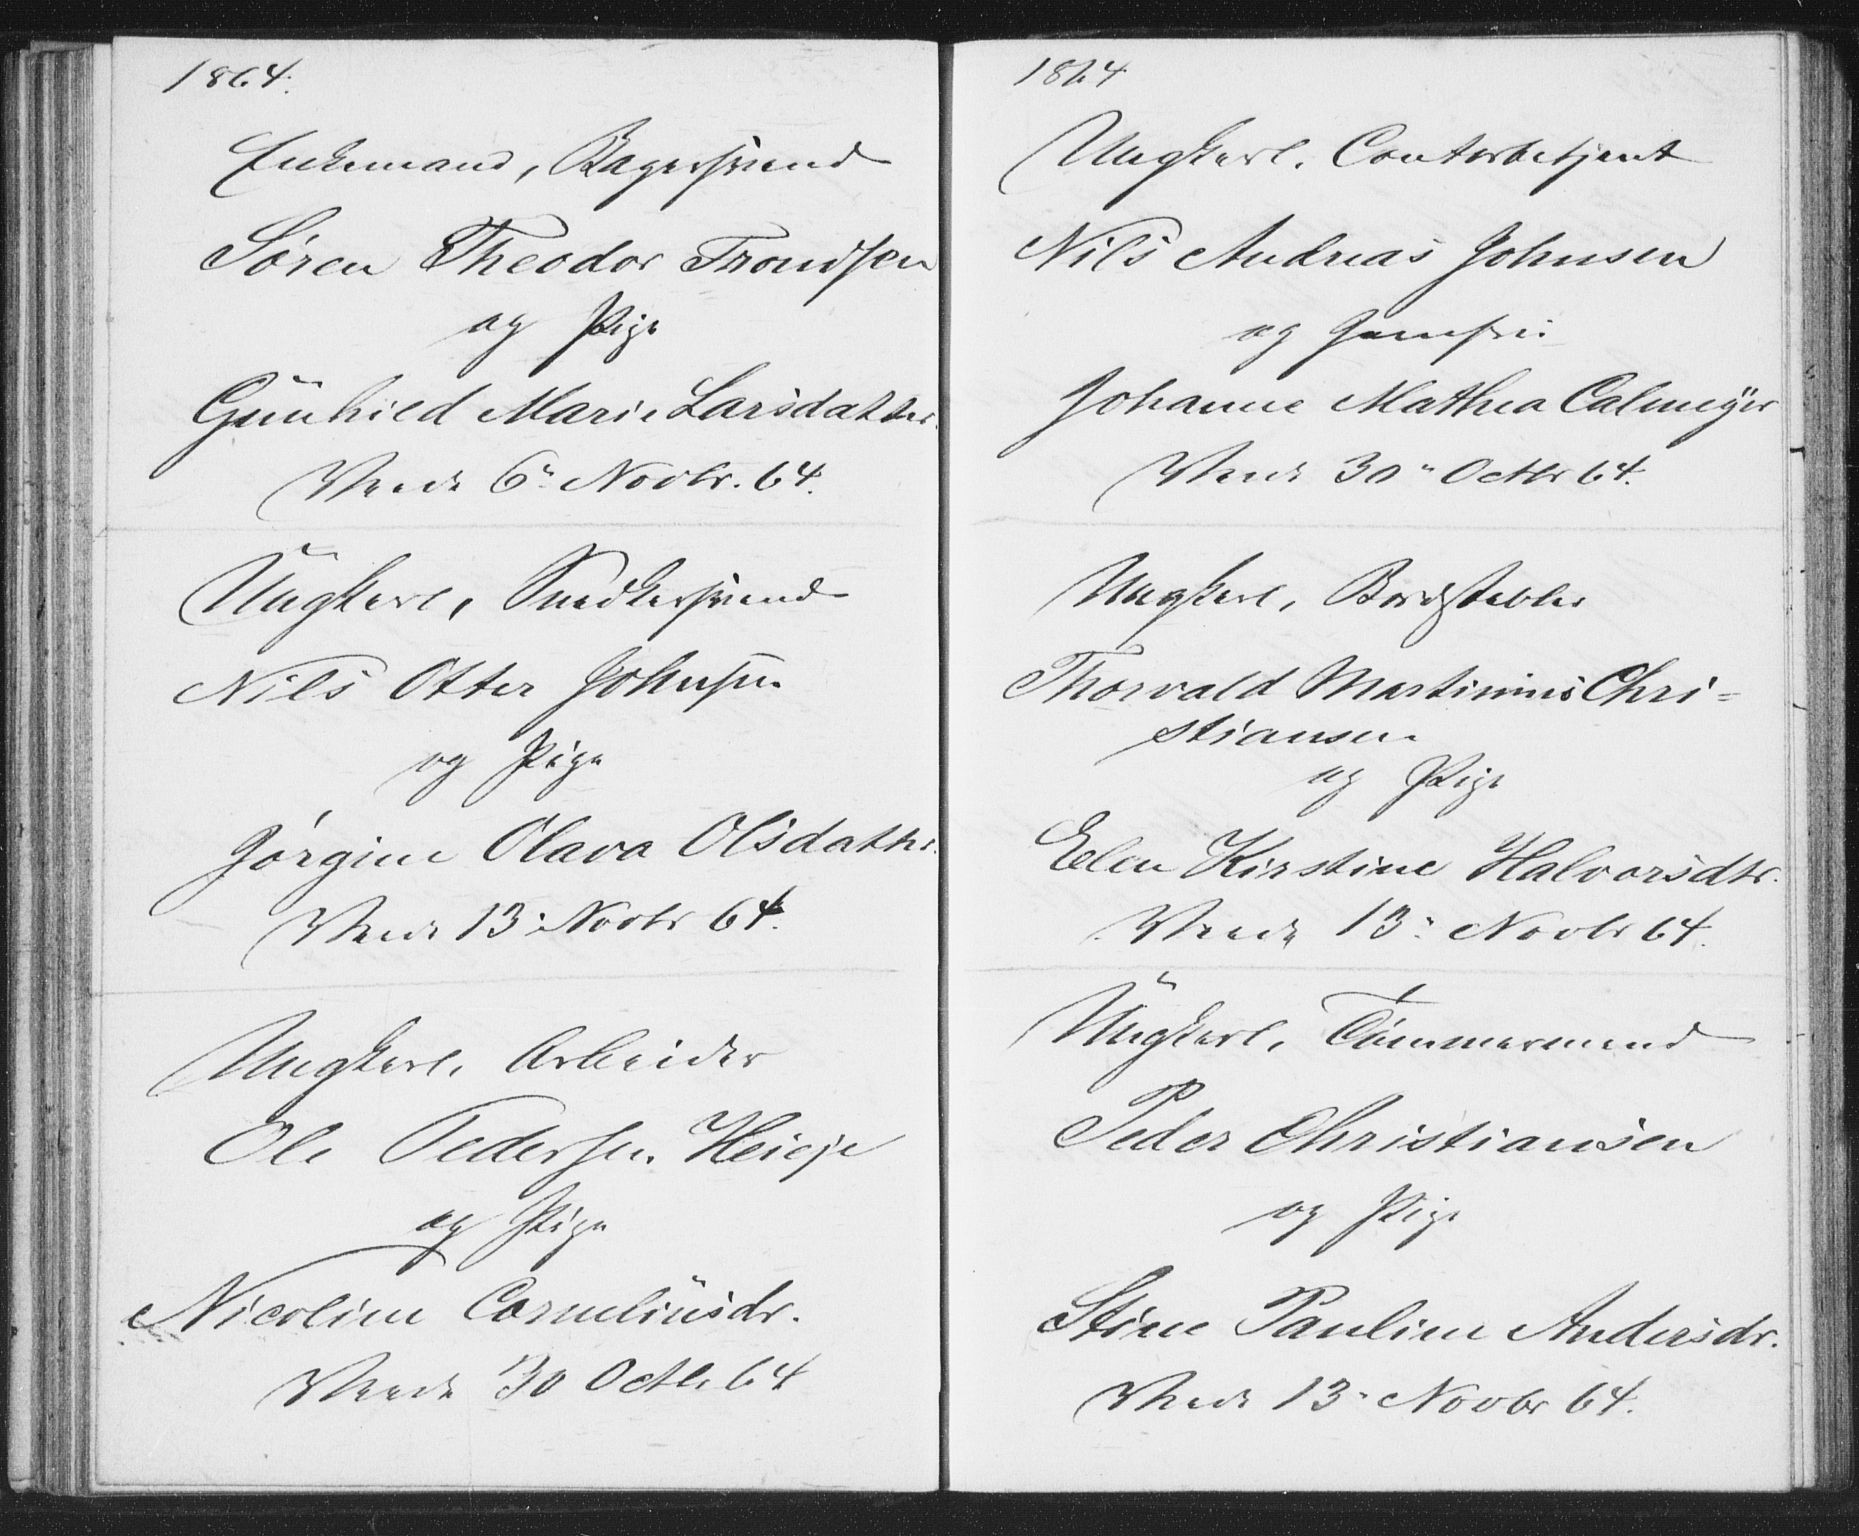 1864.
Enkemand, Bagersvend
Søren Theodor Trondsen
og Pige
Gunhild Marie Larsdatter.
Viede 6" Novbr. 64.
Ungkarl, Snedkersvend
Nils Otter Johnsen
og Pige
Jørgine Olava Olsdatter.
Viede 13" Novbr 64.
Ungkarl, Arbeider
Ole Pedersen Heieje
og Pige
Nicoline Corneliusdr.
Viede 30 Octb. 64
1864
Ungkarl. Contorbetjent
Nils Andreas Johnsen
og Jomfru
Johanne Mathea Calmeyer
Viede 30" Octbr 64.
Ungkarl, Bordstabler
Thorvald Martinius Chri=
stiansen
og Pige
Elen Kirstine Halvorsdtr.
Viede 13" Novbr 64.
Ungkarl, Tømmermand
Peder Christiansen
og Pige
Stine Pauline Andersdr.
Viede 13" Novbr 64.